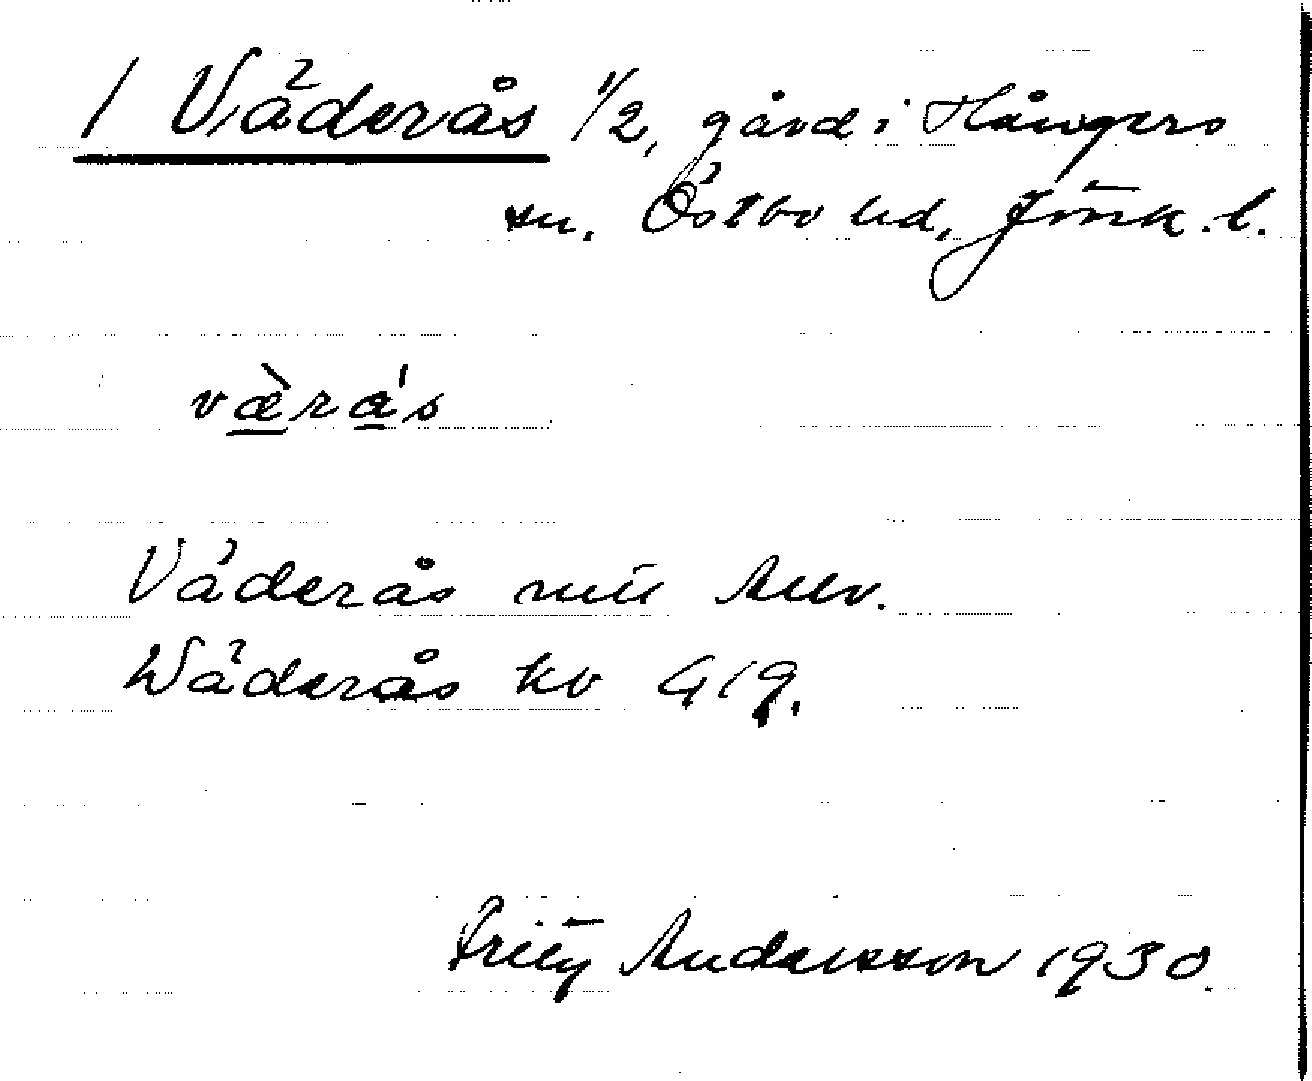 / Väderås 1/2, gård i Hångers
sn. Östbo hd, Jönk. l.
væ̀rás
Väderås
Wäderås kb 419.
Fritz Andersson 1930.